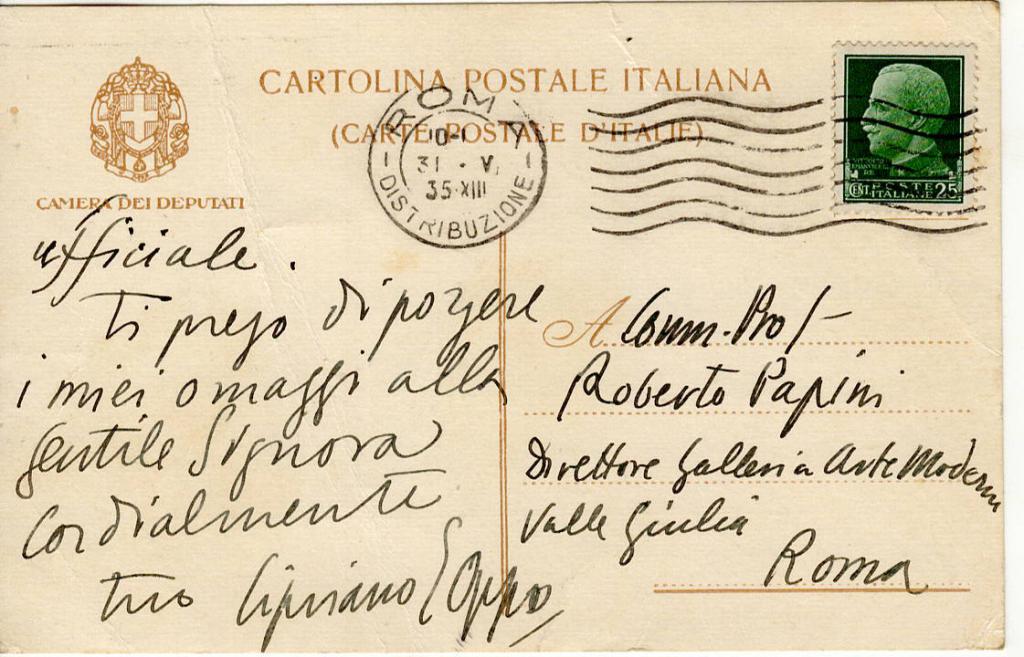 CARTOLINA POSTALE ITALIANA
(CARTE POSTALE D'ITALIE)
CAMERA DEI DEPUTATI
ROMA
10-1
31 · V
35·XIII
DISTRIBUZIONE
VITTORIO
EMANUELE
RE
CENT. POSTE 25
ITALIANE
ufficiale.
Ti prego di porgere
i miei omaggi alla
gentile Signora
Cordialmente
tuo Cipriano E Oppo
A Comm. Prof
Roberto Papini
Direttore Galleria Arte Moderna
Valle Giulia
Roma